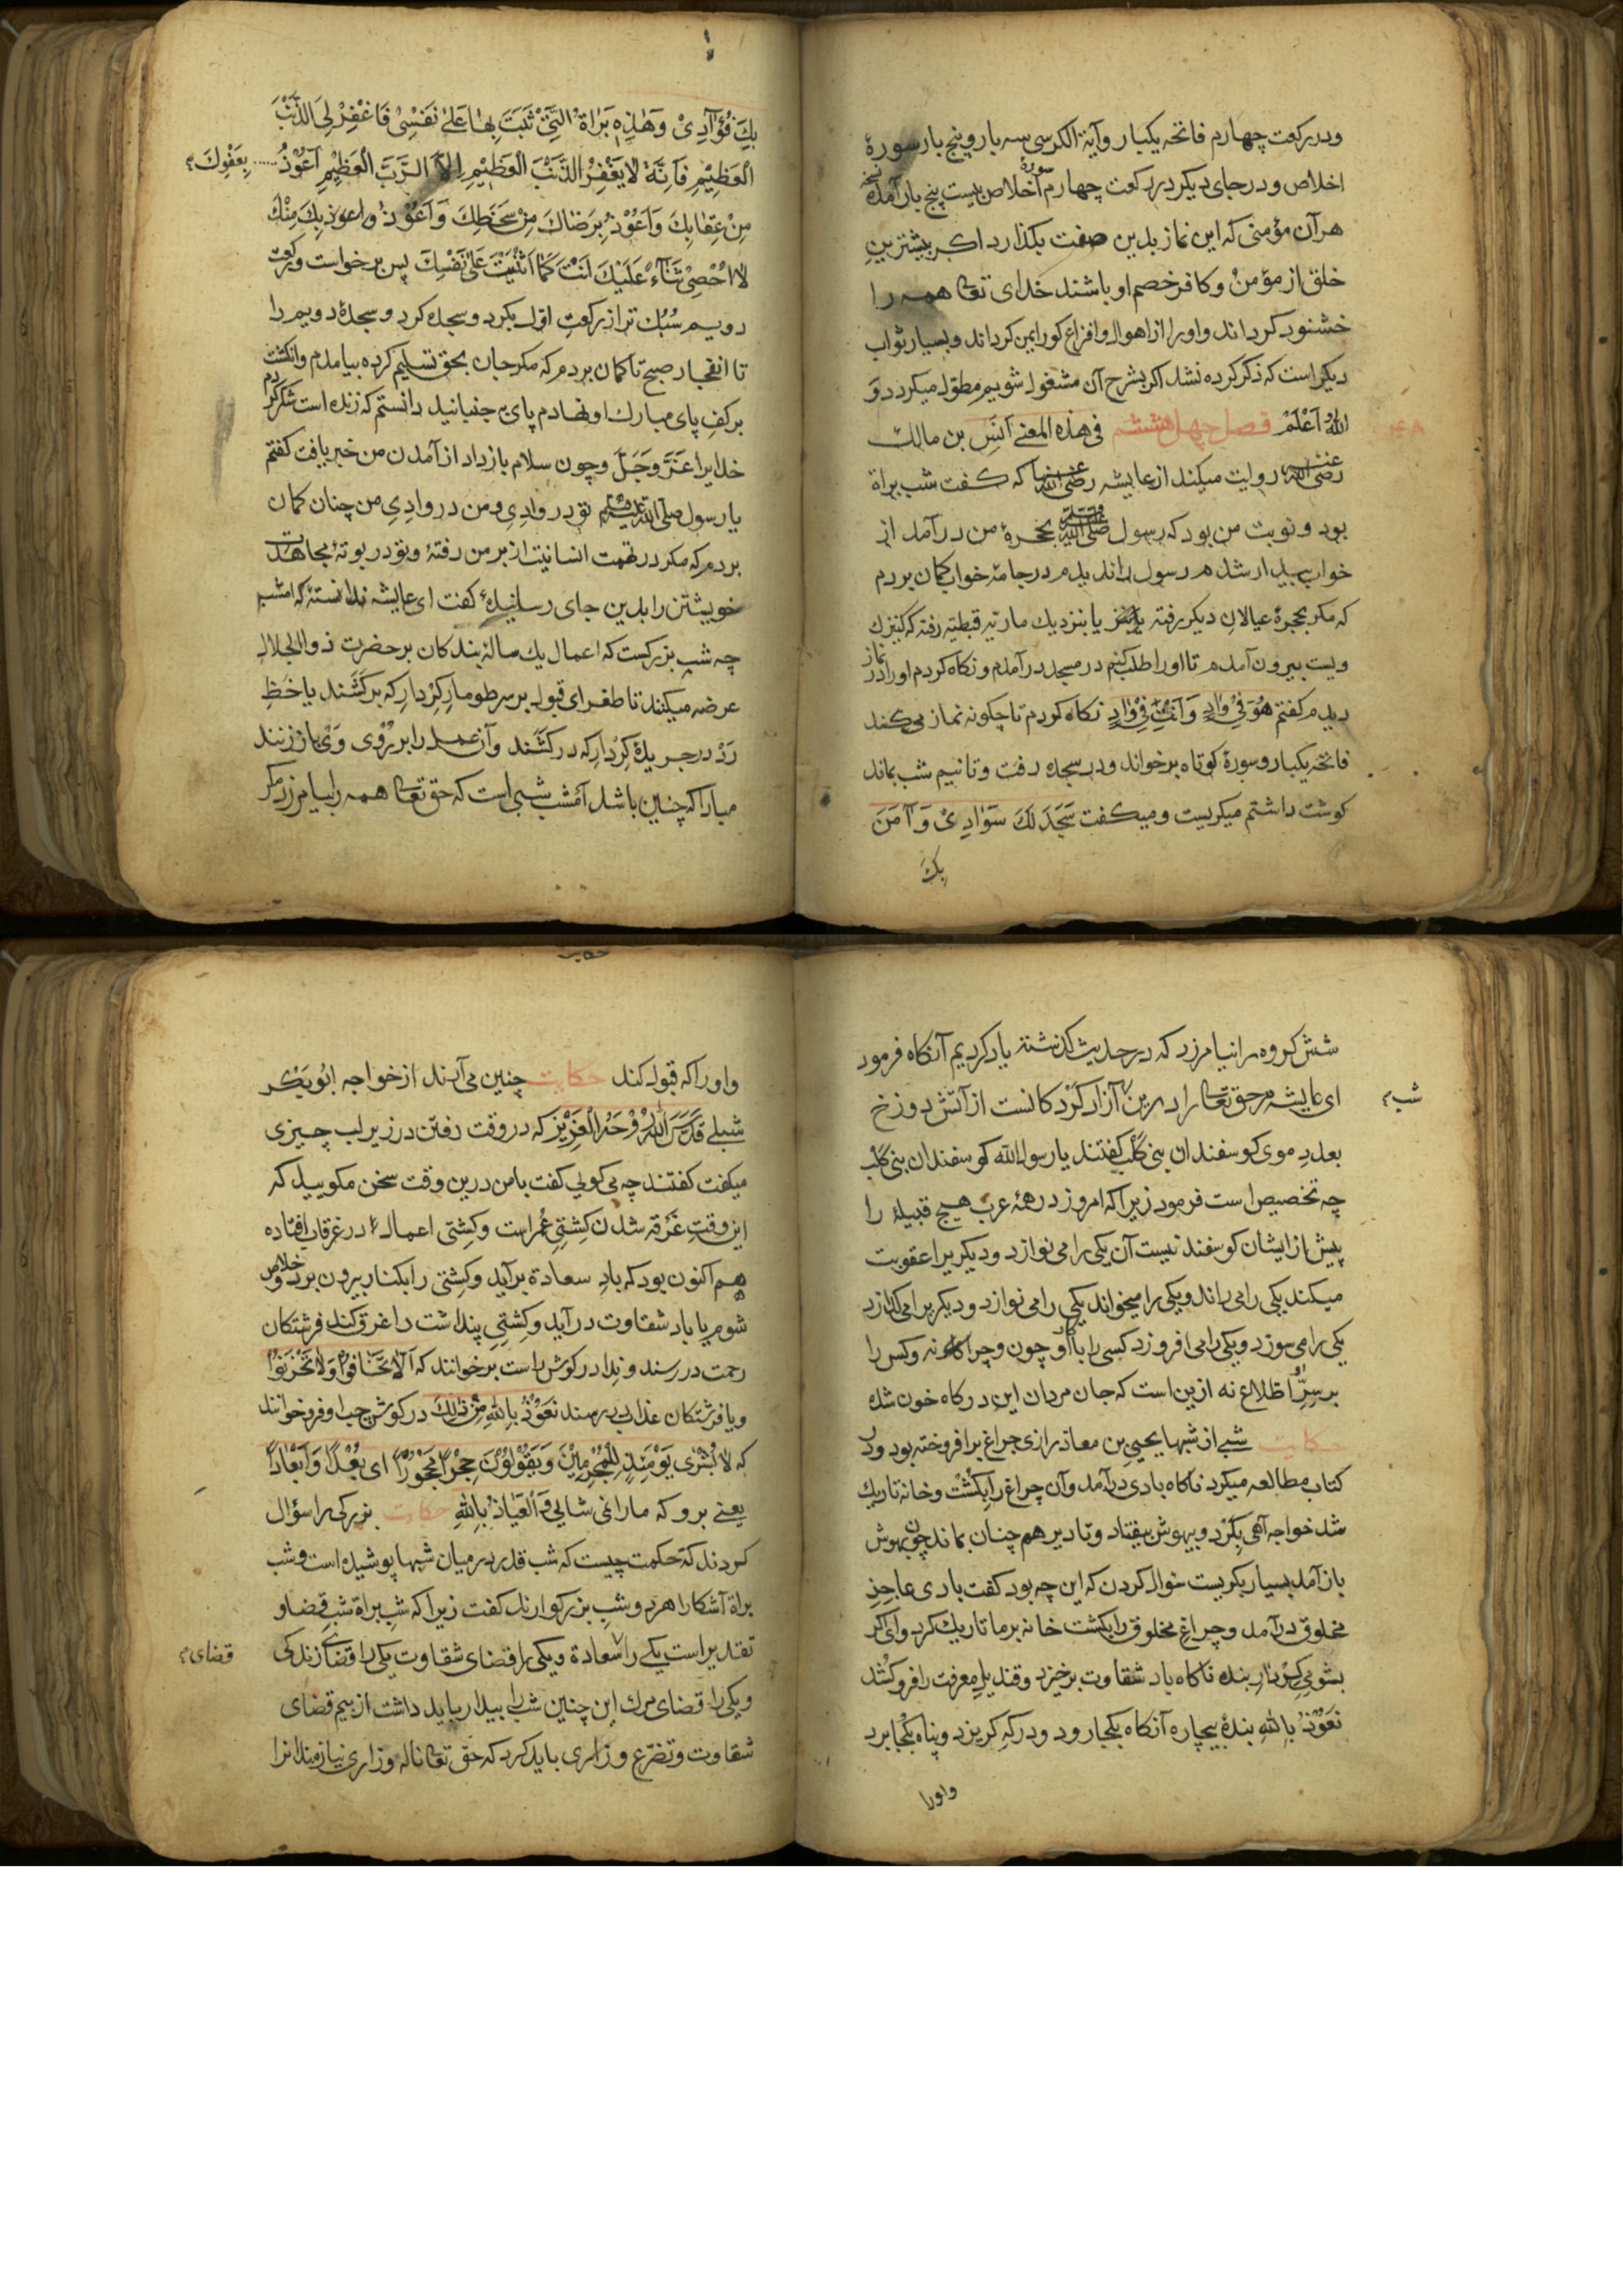 ودر رکعت چهارم فاتحه یکبار وآیة الکرسی سه بار وپنج بار سورهٔ
اخلاص ودر جای دیکر در رکعت چهارم سورهٔ اخلاص بیست پنج بار آمده
هر آن مؤمنی که این نماز بدین صفت بکذارد اکر بیشترینِ
خلق از مؤمن وکافر خصم او باشند خدای تعالی همه را
خشنود کرداند واورا از اهوال وافزاع کور ایمن کرداند وبسیار ثواب
دیکر است که ذکر کرده نشد اکر بشرح آن مشغول شویم مطوّل میکردد وَ
اللّٰهُ اَعْلَمْ فصل چهل هشتم فی هذه المعنے اَنَسِ بن مالك
رضی اللّٰه عنه روایت میکند از عایشه رضی اللّٰه عنها که کفت شب براة
بود ونوبت من بود که رسول صلی اللّٰه علیه وسلم بحجرهٔ من در آمد از
خواب بیدار شدم رسول را ندیدم در جامهٔ خواب کمان بردم
که مکر بحجرهٔ عیالان دیکر رفته یا بنزدیك ماریهٔ قبطیه رفته که کنیزك
ویست بیرون آمدم تا اورا طلب کنم در مسجد در آمدم ونکاه کردم اورا در نماز
دیدم کفتم هُوَ فِیْ وٰادٍ وَاَنْتَ فِیْ وٰادٍ نکاه کردم تا چکونه نماز می کند
فاتحه یکبار وسورهٔ کوتاه برخواند ودر سجده رفت وتا نیم شب بماند
کوشت داشتم میکریست ومیکفت سَجَدَ لَكَ سَوٰادِیْ وَآمَنَ
بِكَ
بِكَ فُؤٰآدِیْ وَهٰذِهِ بَرٰاة الَّتِیْ ثَبَتَ بِهٰا عَلیٰ نَفْسِیْ فَاغْفِرْ لِیَ الذَّنْبَ
الْعَظِیْمِ فَاِنَّهُ لاٰ یَغْفِرُ الذَّنْبَ الْعَظِیْمِ اِلاَّ الرَّبَّ الْعَظِیْمِ اَعُوْذُ بِعَفْوِكَ
مِنْ عِقٰابِكَ وَاَعُوْذُ بِرِضٰاكَ مِنْ سَخَطِكَ وَاَعُوْذُ واعوذ بِكَ مِنْكَ
لاٰ اُحْصِیْ ثَنٰآءً عَلَیْكَ اَنْتَ کَمٰا اَثْنَیْتَ عَلیٰ نَفْسِكَ پس برخواست ورکعت
دویم سُبُك تر از رکعتِ اوّل بکرد وسجده کرد وسجدهٔ دویم را
تا انفجار صبح تا کمان بردم که مکر جان بحق تسلیم کرده بیامدم وانکشت
بر کفِ پای مبارك او نهادم پای بجنبانید دانستم که زنده است شکر کردم
خدایرا عَزَّ وَجَلَّ وچون سلام باز داد از آمدن من خبر یافت کفتم
یا رسول صلی اللّٰه علیه وسلم تو در وادِی ومن در وادِیِ من چنان کمان
بردم که مکر در تهمت انسانیت از بر من رفتهٔ وتو در بوتهٔ مجاهدت
خویشتن را بدین جای رسانیدهٔ کفت ای عایشه ندانستهٔ که امشب
چه شب بزرکست که اعمال یك سالهٔ بندکان بر حضرت ذو الجلال
عرضه میکنند تا طغرای قبول بر سر طومارِ کِرْدارِ که برکَشَند یا خطِ
رَدْ در جریدهٔ کِرْدارِ که درکَشَند وآن عمل را بر رُوْی وَیْ باز زنند
مبادا که چنین باشد اَمشب شبی است که حق تعالی همه را بیامرزد مکر
شش کروه را نیامرزد که در حدیث کذشته یاد کردیم آنکاه فرمود
ای عایشه مر حق تعالی را درین شب آزاد کَرْدکانست از آتش دوزخ
بعددِ موی کوسفندان بنی کلب کفتند یا رسول اللّٰه کوسفندان بنی کلب
چه تخصیص است فرمود زیرا که امروز در همهٔ عرب هیچ قبیلهٔ را
پیش از ایشان کوسفند نیست آن یکی را می نوازد ودیکریرا عقوبت
میکند یکی را می راند ویکی را میخواند یکی را می نوازد ودیکریرا می کدازد
یکی را می سوزد ویکی را می افروزد کسی را با او چون وچرا کاه نه وکس را
بر سِرِّ او اطلاع نه ازین است که جان مردان این درکاه خون شده
حکایت شبے از شبها یحیی بن معاذ رازی چراغ برافروخته بود ودر
کتاب مطالعه میکرد ناکاه بادی درآمد وآن چراغ را بِکُشْت وخانه تاریك
شد خواجه آهی بِکَرْد وبیهوش بیفتاد وتا دیر هم چنان بماند چون بهوش
باز آمد بسیار بکریست سؤال کردن که این چه بود کفت بادی عاجزِ
مخلوق درآمد وچراغِ مخلوق را بکشت خانه بر ما تاریك کرد وای اکر
بشومیِ کِرْدارِ بنده ناکاه باد شقاوت برخیزد وقندیلِ معرفت را فروکُشد
نَعُوْذُ بِاللّٰهِ بندهٔ بیچاره آنکاه بکجا رود ودر کهِ کریزد وپناه بکجا برد
واورا
واورا که قبول کند حکایت چنین می آرند از خواجه ابُو بَکْر
شبلے قَدَّسَ اللّٰهُ رُوْحَهُ الْعَزِیْز که در وقت رفتن در زیر لب چیزی
میکفت کفتند چه می کویی کفت با من درین وقت سخن مکویید که
این وقتِ غَرْقه شدن کِشتیِ عُمر است وکِشتی اعمال در غرقاب افتاده
هم اکنون بود که بادِ سعادة برآید وکِشتی را بکنار بیرون برد وخلاص
شوم یا باد شقاوت درآید وکِشتیِ پنداشت را غرق کند فرشتکان
رحمت در رسند وندا در کوش راست برخوانند که اَلاّٰ تَخٰافُوْا وَلاٰ تَحْزَنُوْا
ویا فرشتکان عذاب برسند نَعُوْذُ بِاللّٰهِ مِنْ ذٰلِكَ در کوش چپ او فروخوانند
که لاٰ بُشْرٰی یَوْمَئِذٍ لِلْمُجْرِمِیْنَ وَیَقُوْلُوْنَ حِجْرًا مَحْجُوْرًا ای بُعْدًا وَاَبْعٰادًا
یعنے برو که مارا نمی شایی وَالْعَیٰاذُ بِاللّٰهِ حکایت بزرکی را سؤال
کردند که حکمت چیست که شب قدر در میان شبها پوشیده است وشب
براة آشکارا هر دو شبِ بزرکوارند کفت زیرا که شبِ براة شبِ قضا و
تقدیر است یکے را قضای سعادة ویکی را قضای شقاوت یکی را قضای زندکی
ویکی را قضای مرك این چنین شب را بیدار باید داشت از بیم قضای
شقاوت وتضرع وزاری باید کرد که حق تعالی ناله وزاری نیازمندانرا